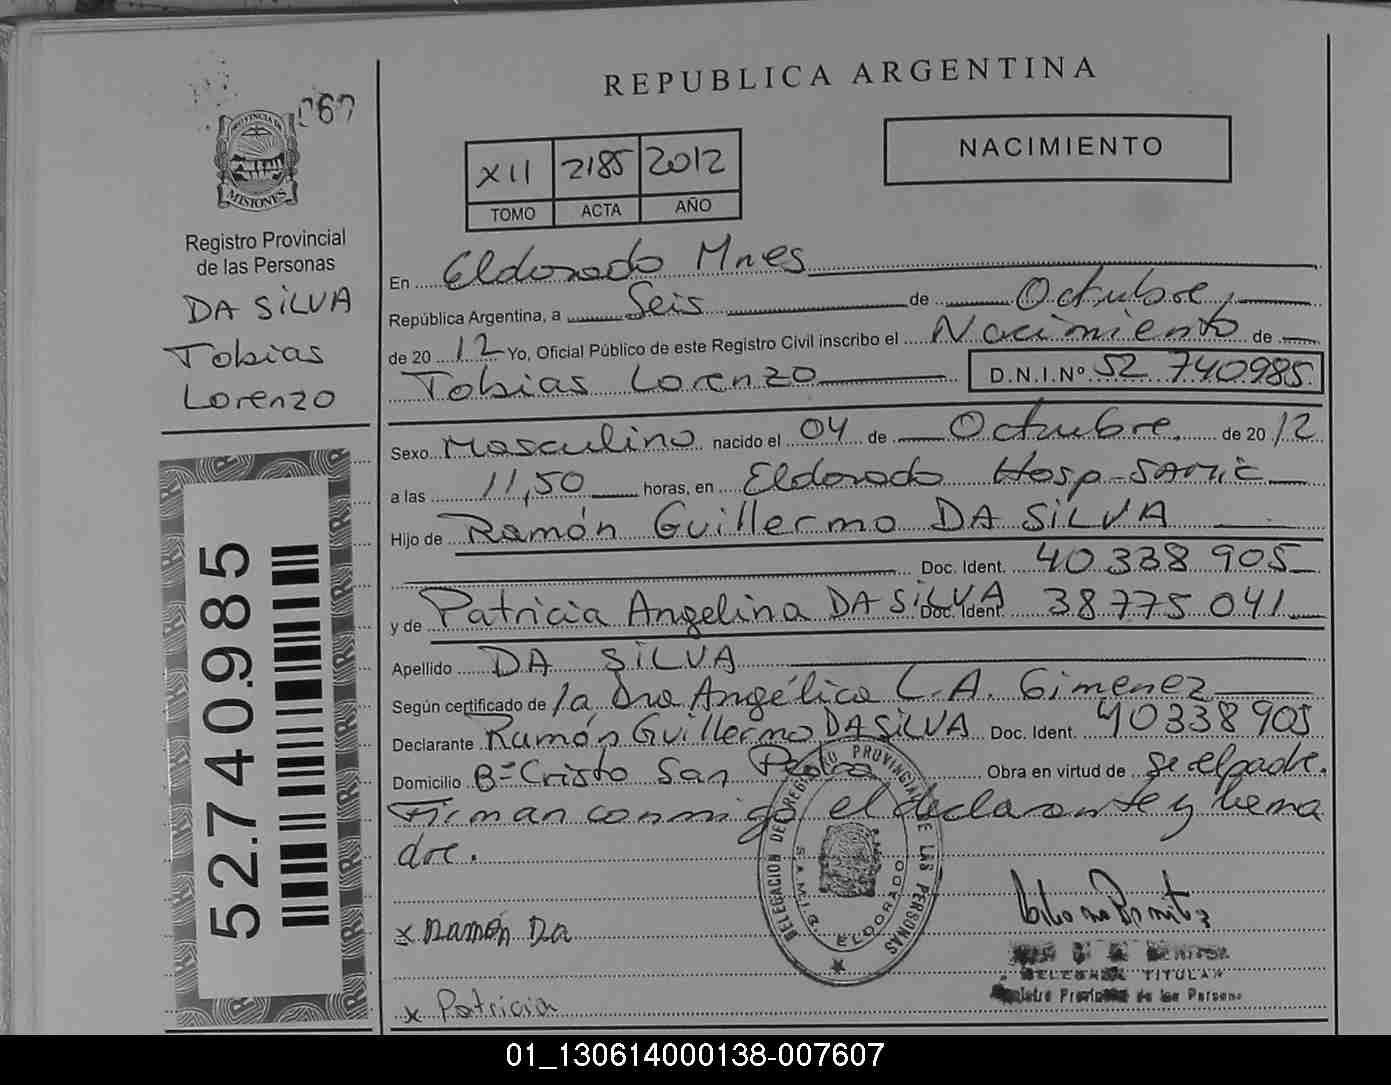 067
PROVINCIA DE
MISIONES
Registro Provincial
de las Personas
DA SILVA
Tobias
Lorenzo
52.740.985
REPUBLICA ARGENTINA
XII 2185 2012
TOMO ACTA AÑO
NACIMIENTO
En Eldorado Mnes
República Argentina, a Seis de Octubre,
de 20 12 Yo, Oficial Público de este Registro Civil inscribo el Nacimiento de
Tobias Lorenzo D.N.I.Nº 52 740985
Sexo Masculino nacido el 04 de Octubre. de 20 12
a las 11,50 horas, en Eldorado Hosp-SAMIC
Hijo de Ramón Guillermo DA SILVA
Doc. Ident. 40 338 905
y de Patricia Angelina DA SILVA Doc. Ident. 38 775 041
Apellido DA SILVA
Según certificado de la Dra Angélica L.A. Gimenez
Declarante Ramón Guillermo DA SILVA Doc. Ident. 40338905
Domicilio Bº Cristo San Pedro Obra en virtud de se el padre.
Firman conmigo el declarante y la ma
dre.
DELEGACION DE REGISTRO PROVINCIAL DE LAS PERSONAS
S.A.M.I.C. ELDORADO
x Ramón Da
x Patricia
BENITEZ
DELEGADA TITULAR
Registro Provincial de las Personas
01_130614000138-007607